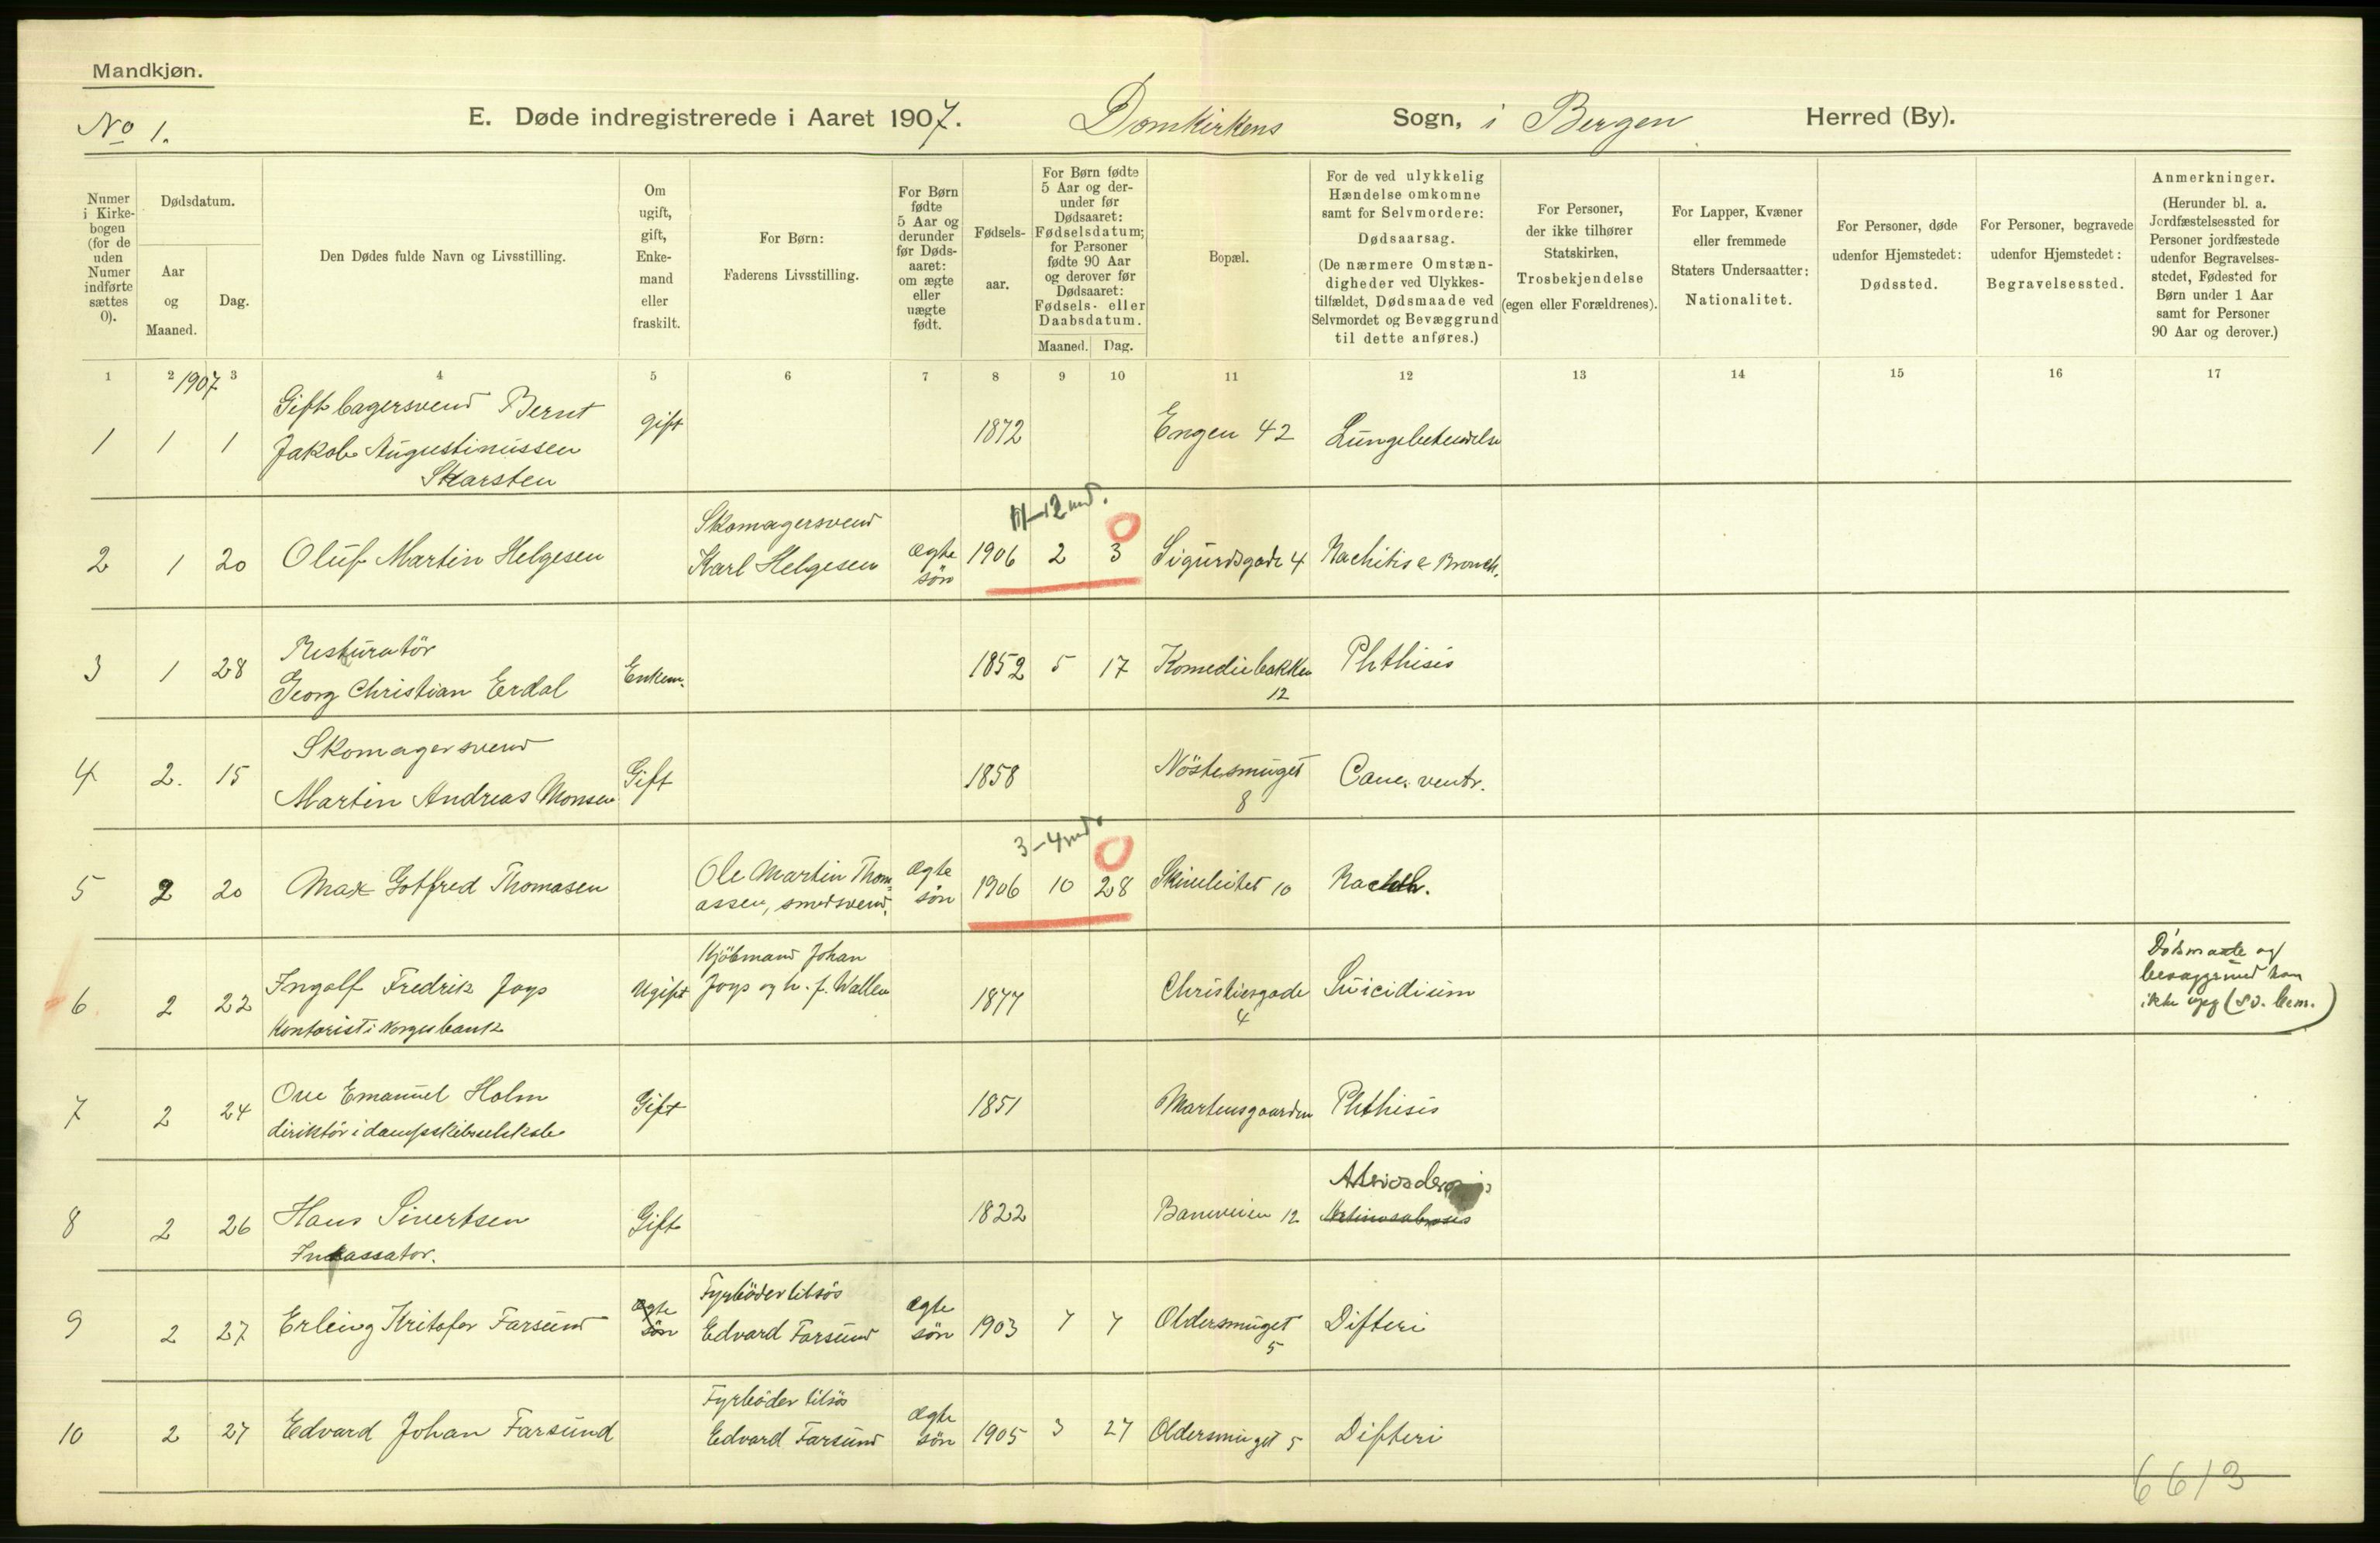 Mandkjøn.
No 1.
E. Døde indregistrerede i Aaret 1907. Domkirkens Sogn, i Bergen Herred (By).
Numer i Kirkebogen (for de uden Numer indførte sættes 0).
Dødsdatum.
Aar og Maaned.
Dag.
Den Dødes fulde Navn og Livsstilling.
Om ugift, gift, Enkemand eller fraskilt.
For Børn:
Faderens Livsstilling.
For Børn fødte 5 Aar og derunder før Dødsaaret: om ægte eller uægte født.
Fødselsaar.
For Børn fødte 5 Aar og derunder før Dødsaaret: Fødselsdatum; for Personer fødte 90 Aar og derover før Dødsaaret: Fødsels- eller Daabsdatum.
Maaned. Dag.
Bopæl.
For de ved ulykkelig Hændelse omkomne samt for Selvmordere:
Dødsaarsag.
(De nærmere Omstændigheder ved Ulykkestilfældet, Dødsmaade ved Selvmordet og Bevæggrund til dette anføres.)
For Personer, der ikke tilhører Statskirken,
Trosbekjendelse
(egen eller Forældrenes).
For Lapper, Kvæner eller fremmede Staters Undersaatter:
Nationalitet.
For Personer, døde udenfor Hjemstedet:
Dødssted.
For Personer, begravede udenfor Hjemstedet:
Begravelsessted.
Anmerkninger.
(Herunder bl. a. Jordfæstelsessted for Personer jordfæstede udenfor Begravelsesstedet, Fødested for Børn under 1 Aar samt for Personer 90 Aar og derover.)
1 2 1907 3 4 5 6 7 8 9 10 11 12 13 14 15 16 17
Gift bagersvend Bernt
1 1 1 Jakob Augustinussen gift 1872 Engen 42
Skarsten
11-12 md.
Skomagersvend
2 1 20 Oluf Martin Helgesen Karl Helgesen ægte søn 1906 2 3 0 Sigurdsgade 4 Rachitis & Bronch.
Resturatör
3 1 28 Georg Christian Erdal Enkem. 1852 5 17 Komediebakken 12 Phthisis
Skomagersvend
4 2. 15 Martin Andreas Monsen Gift 1858 Nöstesmuget 8 Canc. ventr.
3-4 md.
5 2 20 Max Gotfred Thomasen Ole Martin Thomassen, smedsvend. ægte søn 1906 10 28 0 10
Kjöbmand Johan
6 2 22 Ingolf Fredrik Joys Ugift Joys og h. f. Wallen 1877 Christiesgade 4 Suicidium
Kontorist i Norges bank
Dødsmaade og
ikke
7 2 24 Ove Emanuel Holm Gift 1851 Martensgaarden Phthisis
direktör i dampskibsselskab
8 2 26 Hans Sivertsen Gift 1822 12
Inkassator.
Fyrböder tilsös
9 2 27 Erling Kritofer Farsund ægte søn Edvard Farsund ægte søn 1903 7 7 Oldersmuget 5 Difteri
Fyrböder tilsös
10 2 27 Edvard Johan Farsund Edvard Farsund ægte søn 1905 3 27 Oldersmuget 5 Difteri
6613